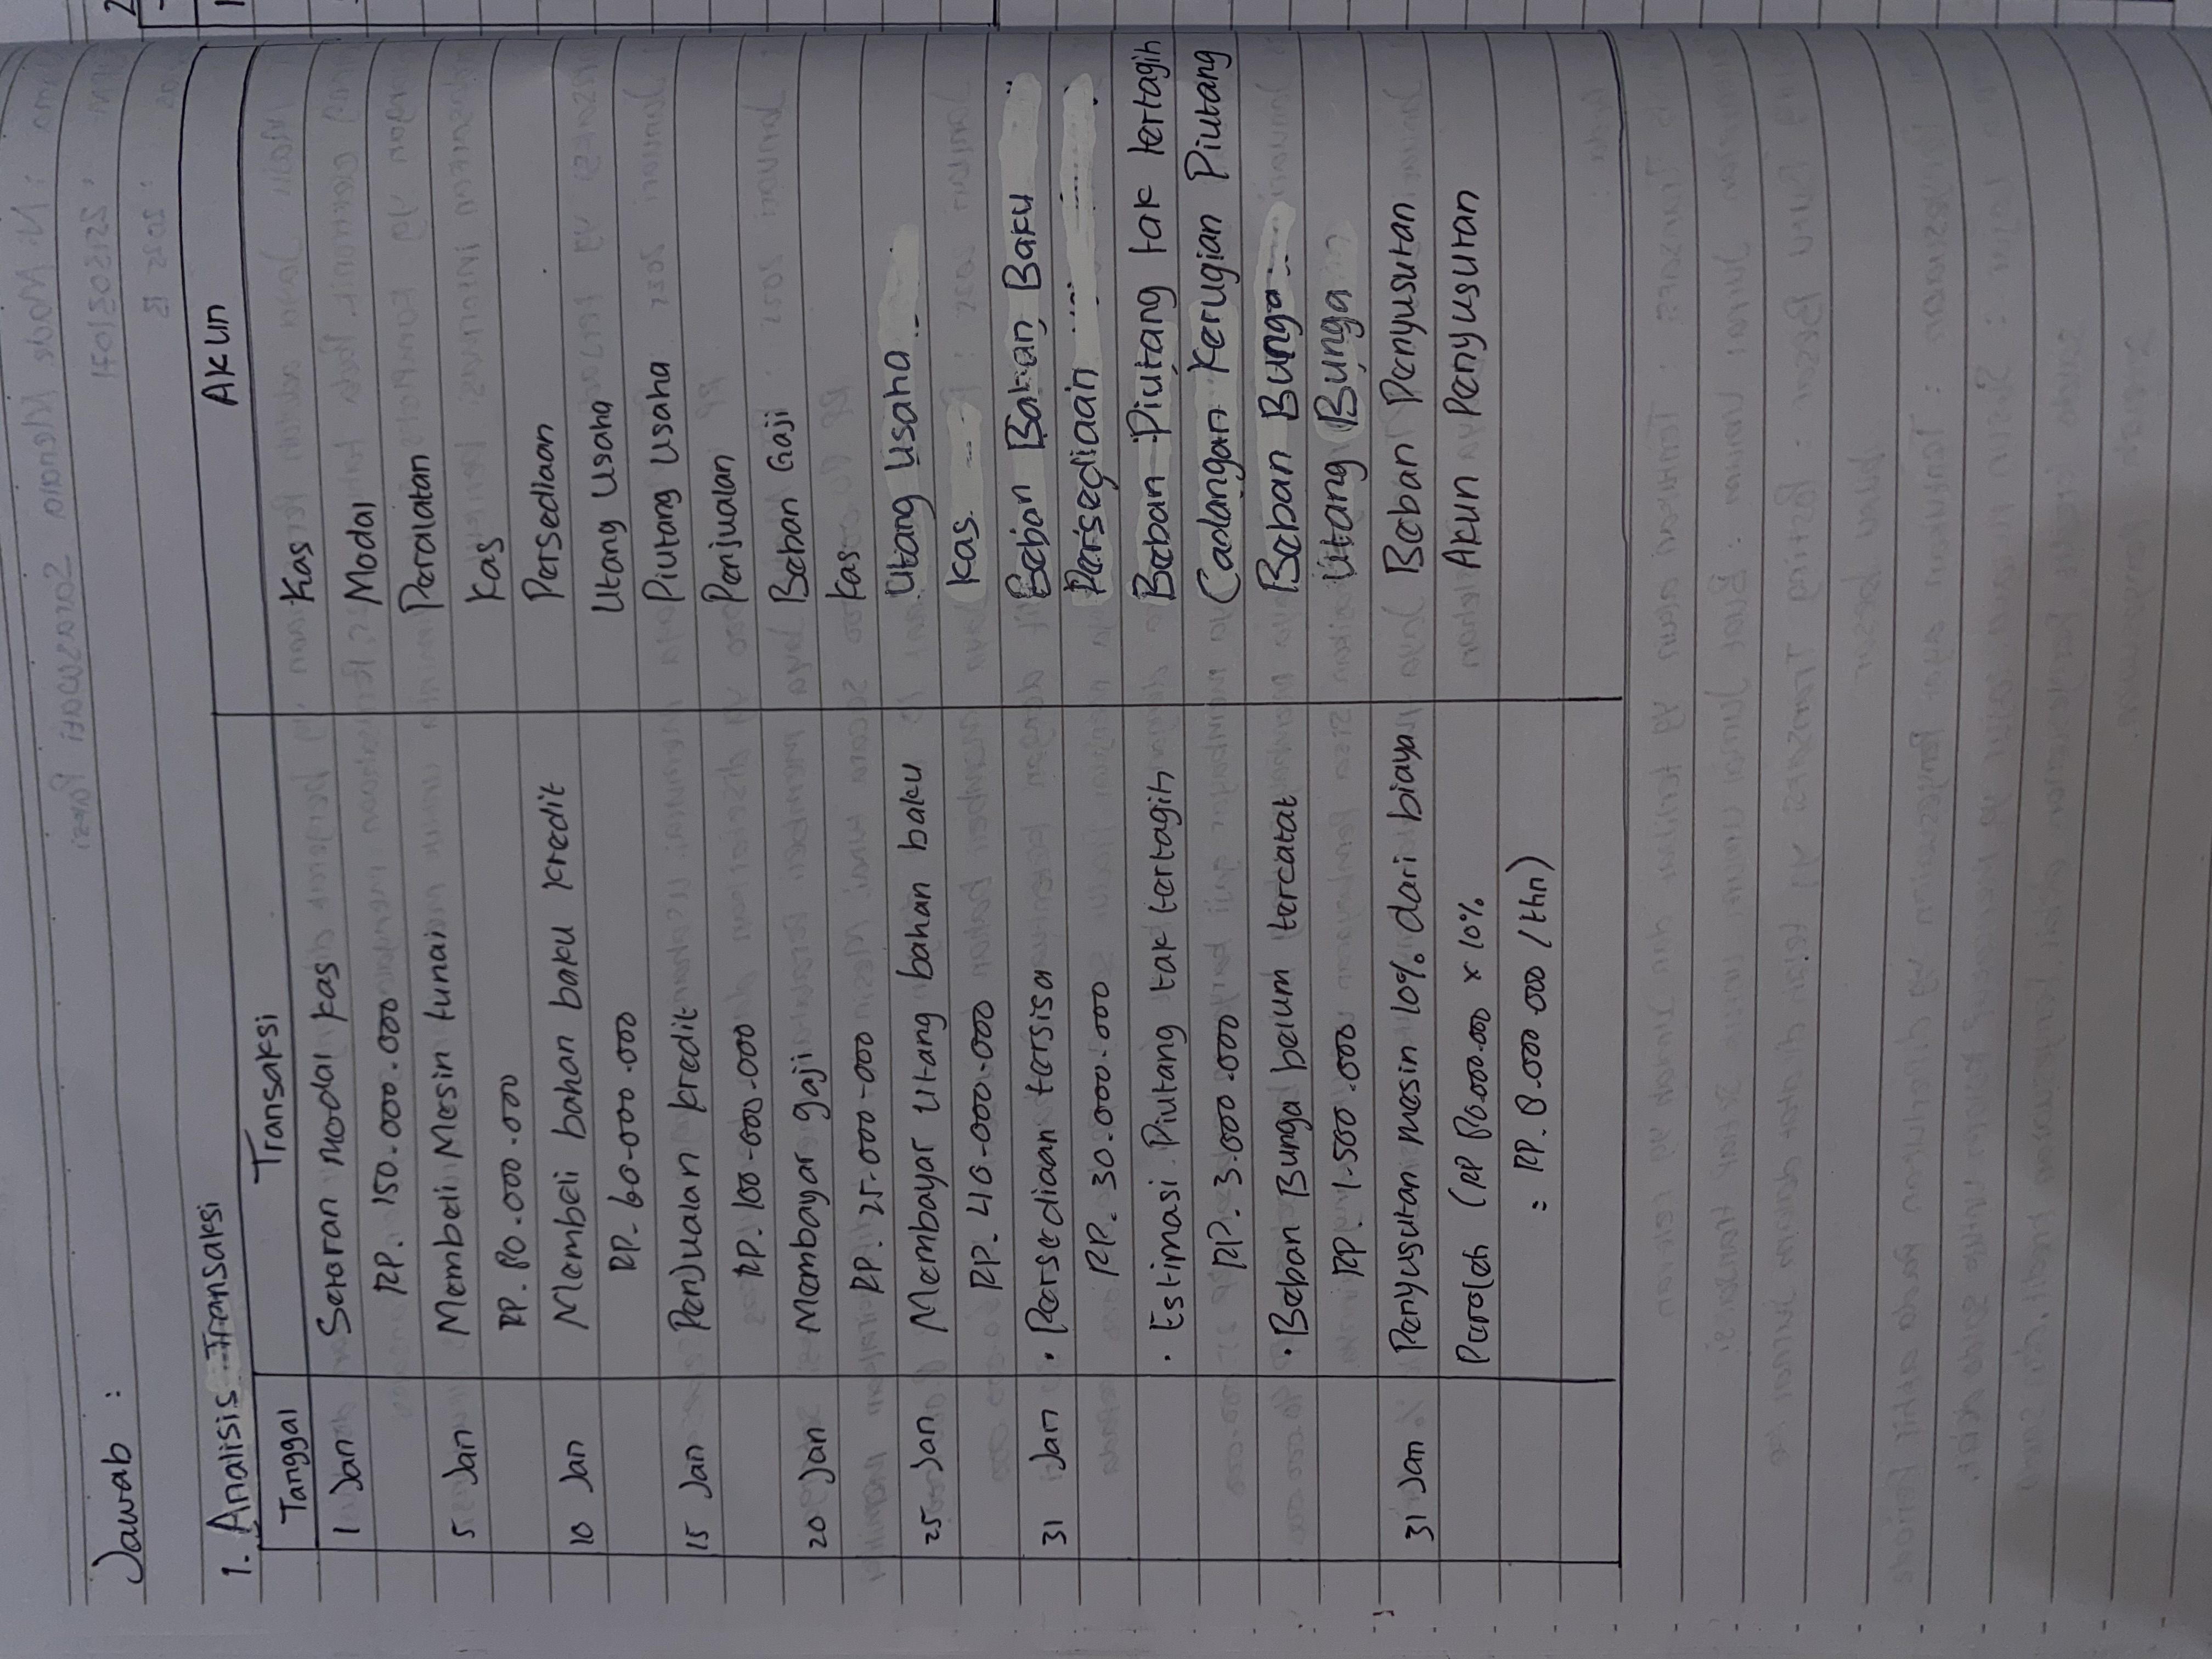 Jawab :
1. Analisis Transaksi
Tanggal Transaksi Akun
1 Jan Setoran modal kas Kas
RP. 150.000.000 Modal
5 Jan Membeli Mesin tunai Peralatan
RP. 80.000.000 Kas
10 Jan Membeli bahan baku kredit Persediaan
RP. 60.000.000 Utang Usaha
15 Jan Penjualan kredit Piutang Usaha
RP. 100.000.000 Penjualan
20 Jan Membayar gaji Beban Gaji
RP. 25.000.000 Kas
25 Jan Membayar utang bahan baku Utang Usaha
RP. 40.000.000 Kas
31 Jan • Persediaan tersisa Beban Bahan Baku
RP. 30.000.000 Persediaan
• Estimasi Piutang tak tertagih Beban Piutang tak tertagih
RP. 3.000.000 Cadangan Kerugian Piutang
• Beban Bunga belum tercatat Beban Bunga
RP. 1.500.000 Utang Bunga
31 Jan Penyusutan mesin 10% dari biaya Beban Penyusutan
Peroleh (RP 80.000.000 x 10% Akun Penyusutan
= RP. 8.000.000 / thn)